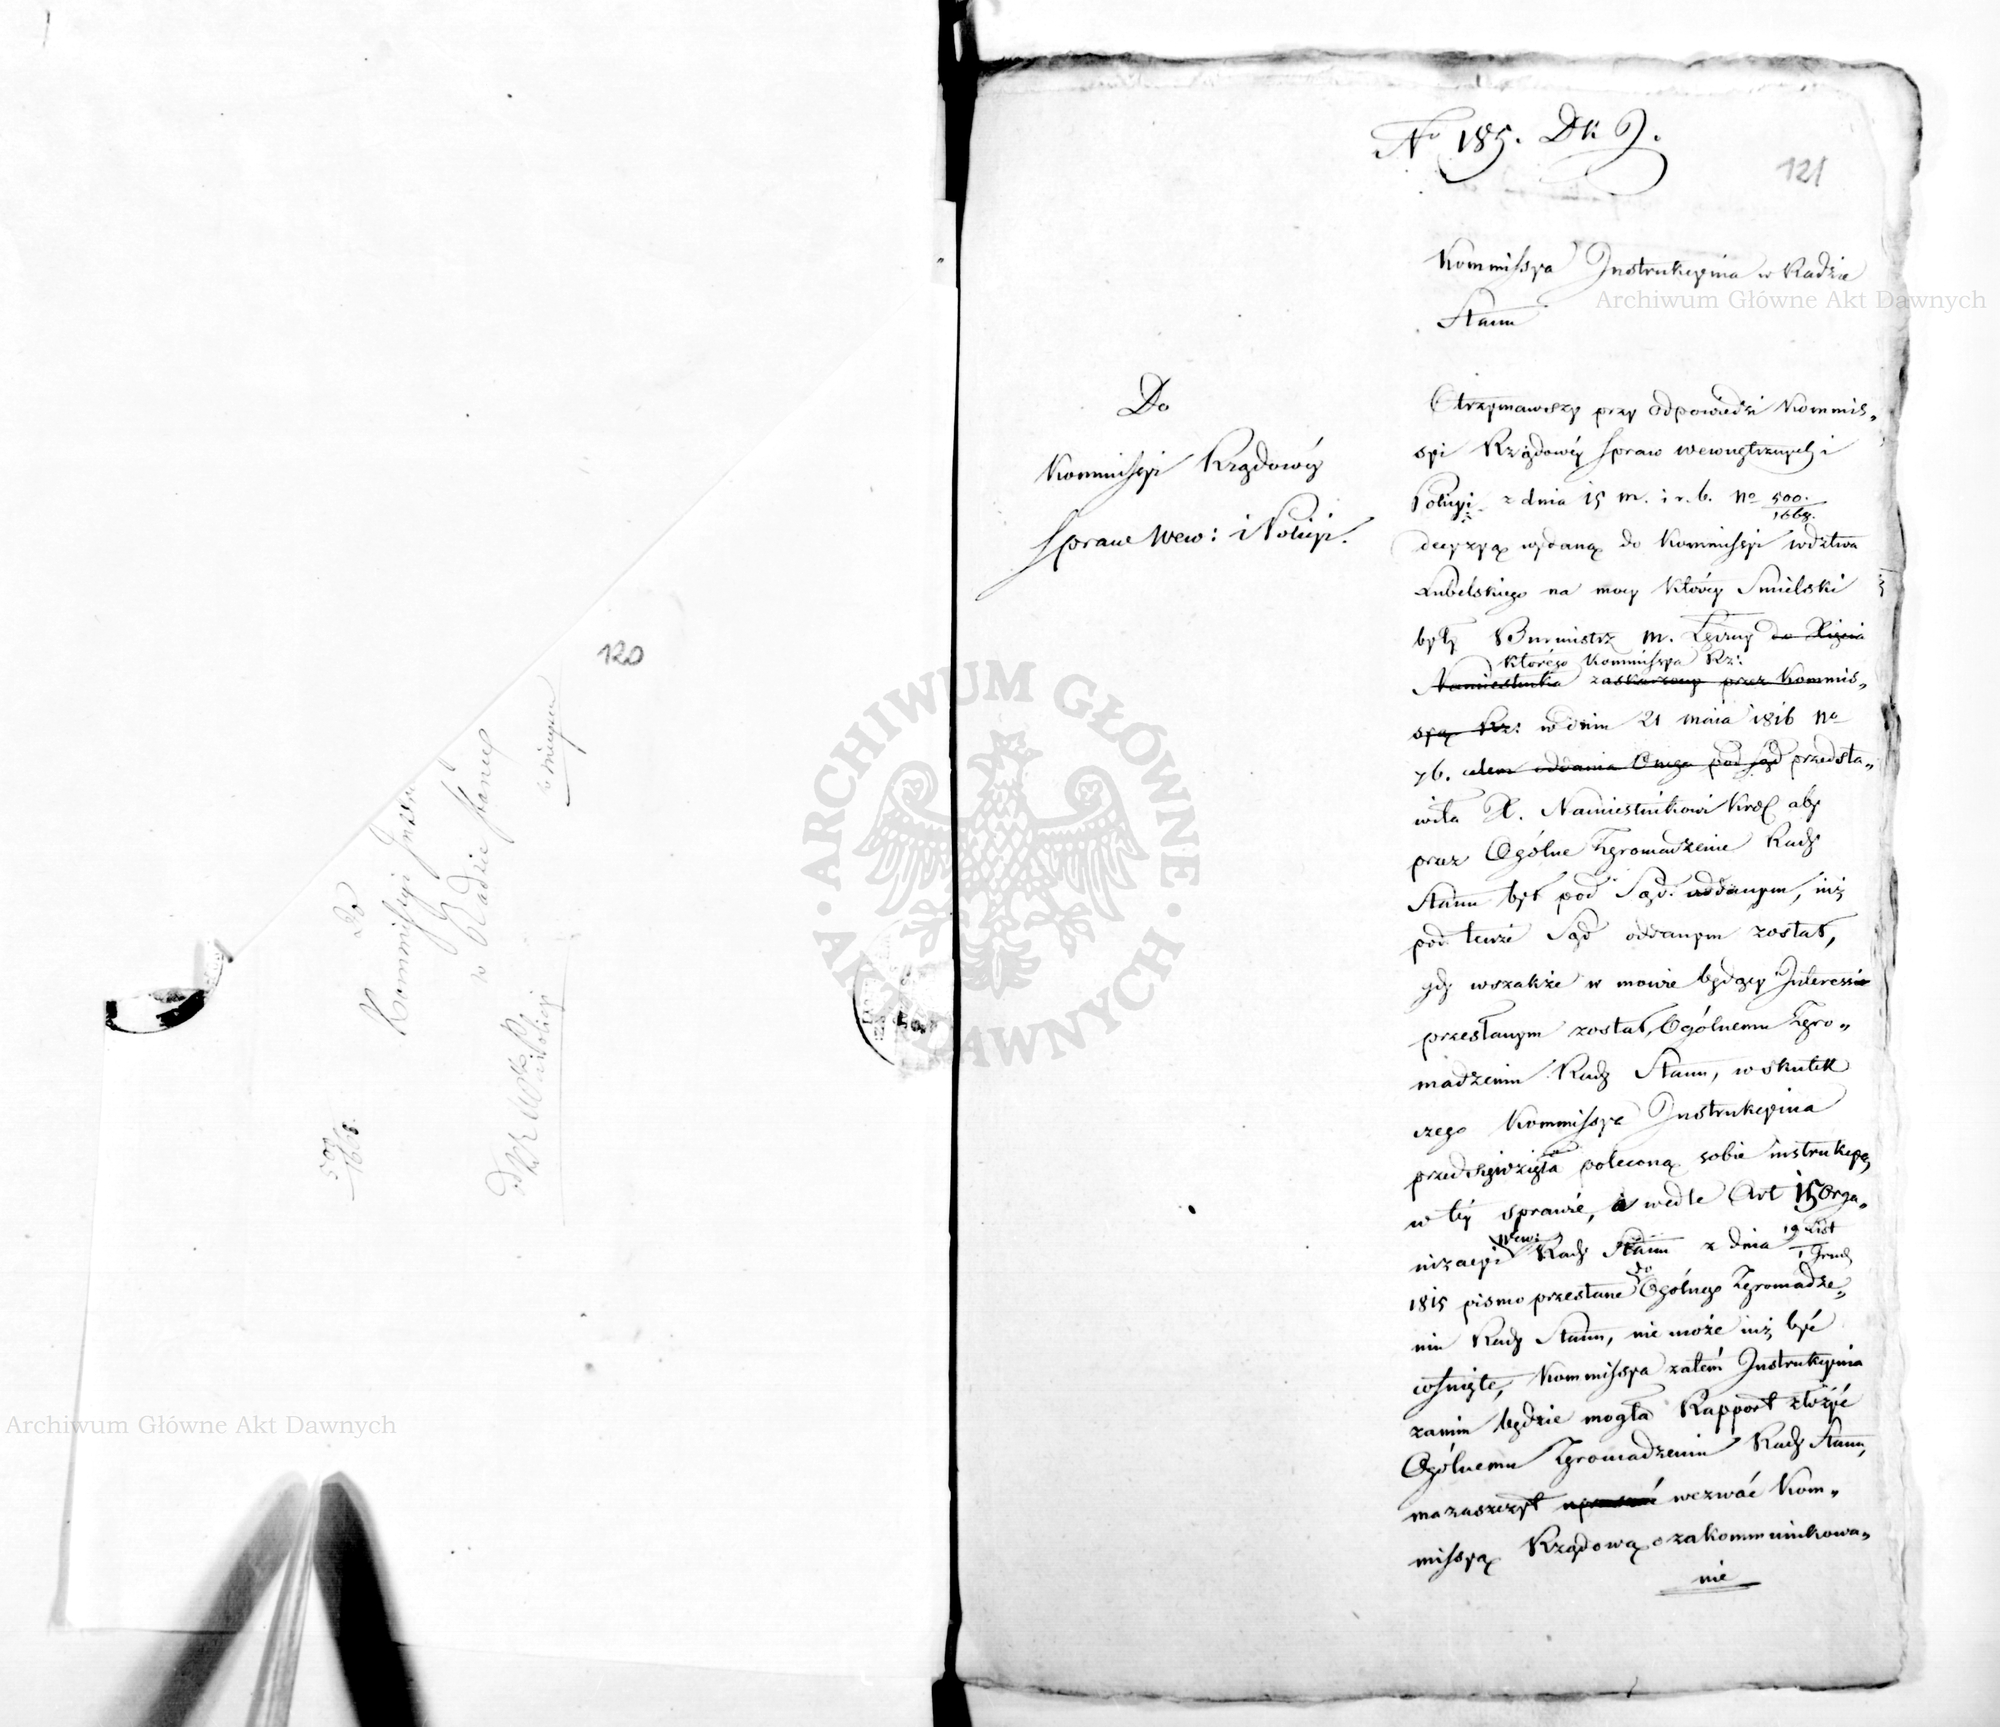 120
Do
Kommissyi Instr
w Radzie Stanu
w mieyscu
500
1668.
№ 185. Dk J.
121
Kommissya Instrukcyina w Radzie
Stanu
Do
Kommissyi Rządowéy
Spraw Wew: i Policyi.
Otrzymawszy przy odpowiedzi Kommis„
syi Rządowéy Spraw wewnętrznych i
Policyi z dnia 15 m. i r. b. No 500./1668.
decyzyą wydaną do Kommissyi wdztwa
Lubelskiego na mocy któréy Smielski
były Burmistrz m. Łęczny do Xięcia
którego Kommissya Rz:
Namiestnika zaskarzony przez Kommis„
syą Rz: w dniu 21 maia 1816 No
76. celem oddania Onego pod sąd przedsta„
wiła X. Namiestnikowi Król aby
przez Ogólne Zgromadzenie Rady
Stanu był pod Sąd oddanym, iuż
pod tenże Sąd oddanym został,
gdy wszakże w mowie będący Interess
przesłanym został, Ogólnemu Zgro„
madzeniu Rady Stanu, w skutek
czego Kommissya Instrukcyina
przedsięwzięła poleconą sobie instrukcyą,
w téy sprawie, a wedle Art 15 Orga„
nizacyi Wew: Rady Stanu z dnia 19 List/1 Grud
1815 pismo przesłane do Ogólnego Zgromadze„
nia Rady Stanu, nie może iuż być
cofnięte, Kommissya zatém Instrukcyina
zanim będzie mogła Rapport złożyć
Ogólnemu Zgromadzeniu Rady Stanu,
ma zaszczyt wezwać Kom„
missyą Rządową o zakommunikowa„
nie
Archiwum Główne Akt Dawnych
Archiwum Główne Akt Dawnych
ARCHIWUM GŁÓWNE AKT DAWNYCH